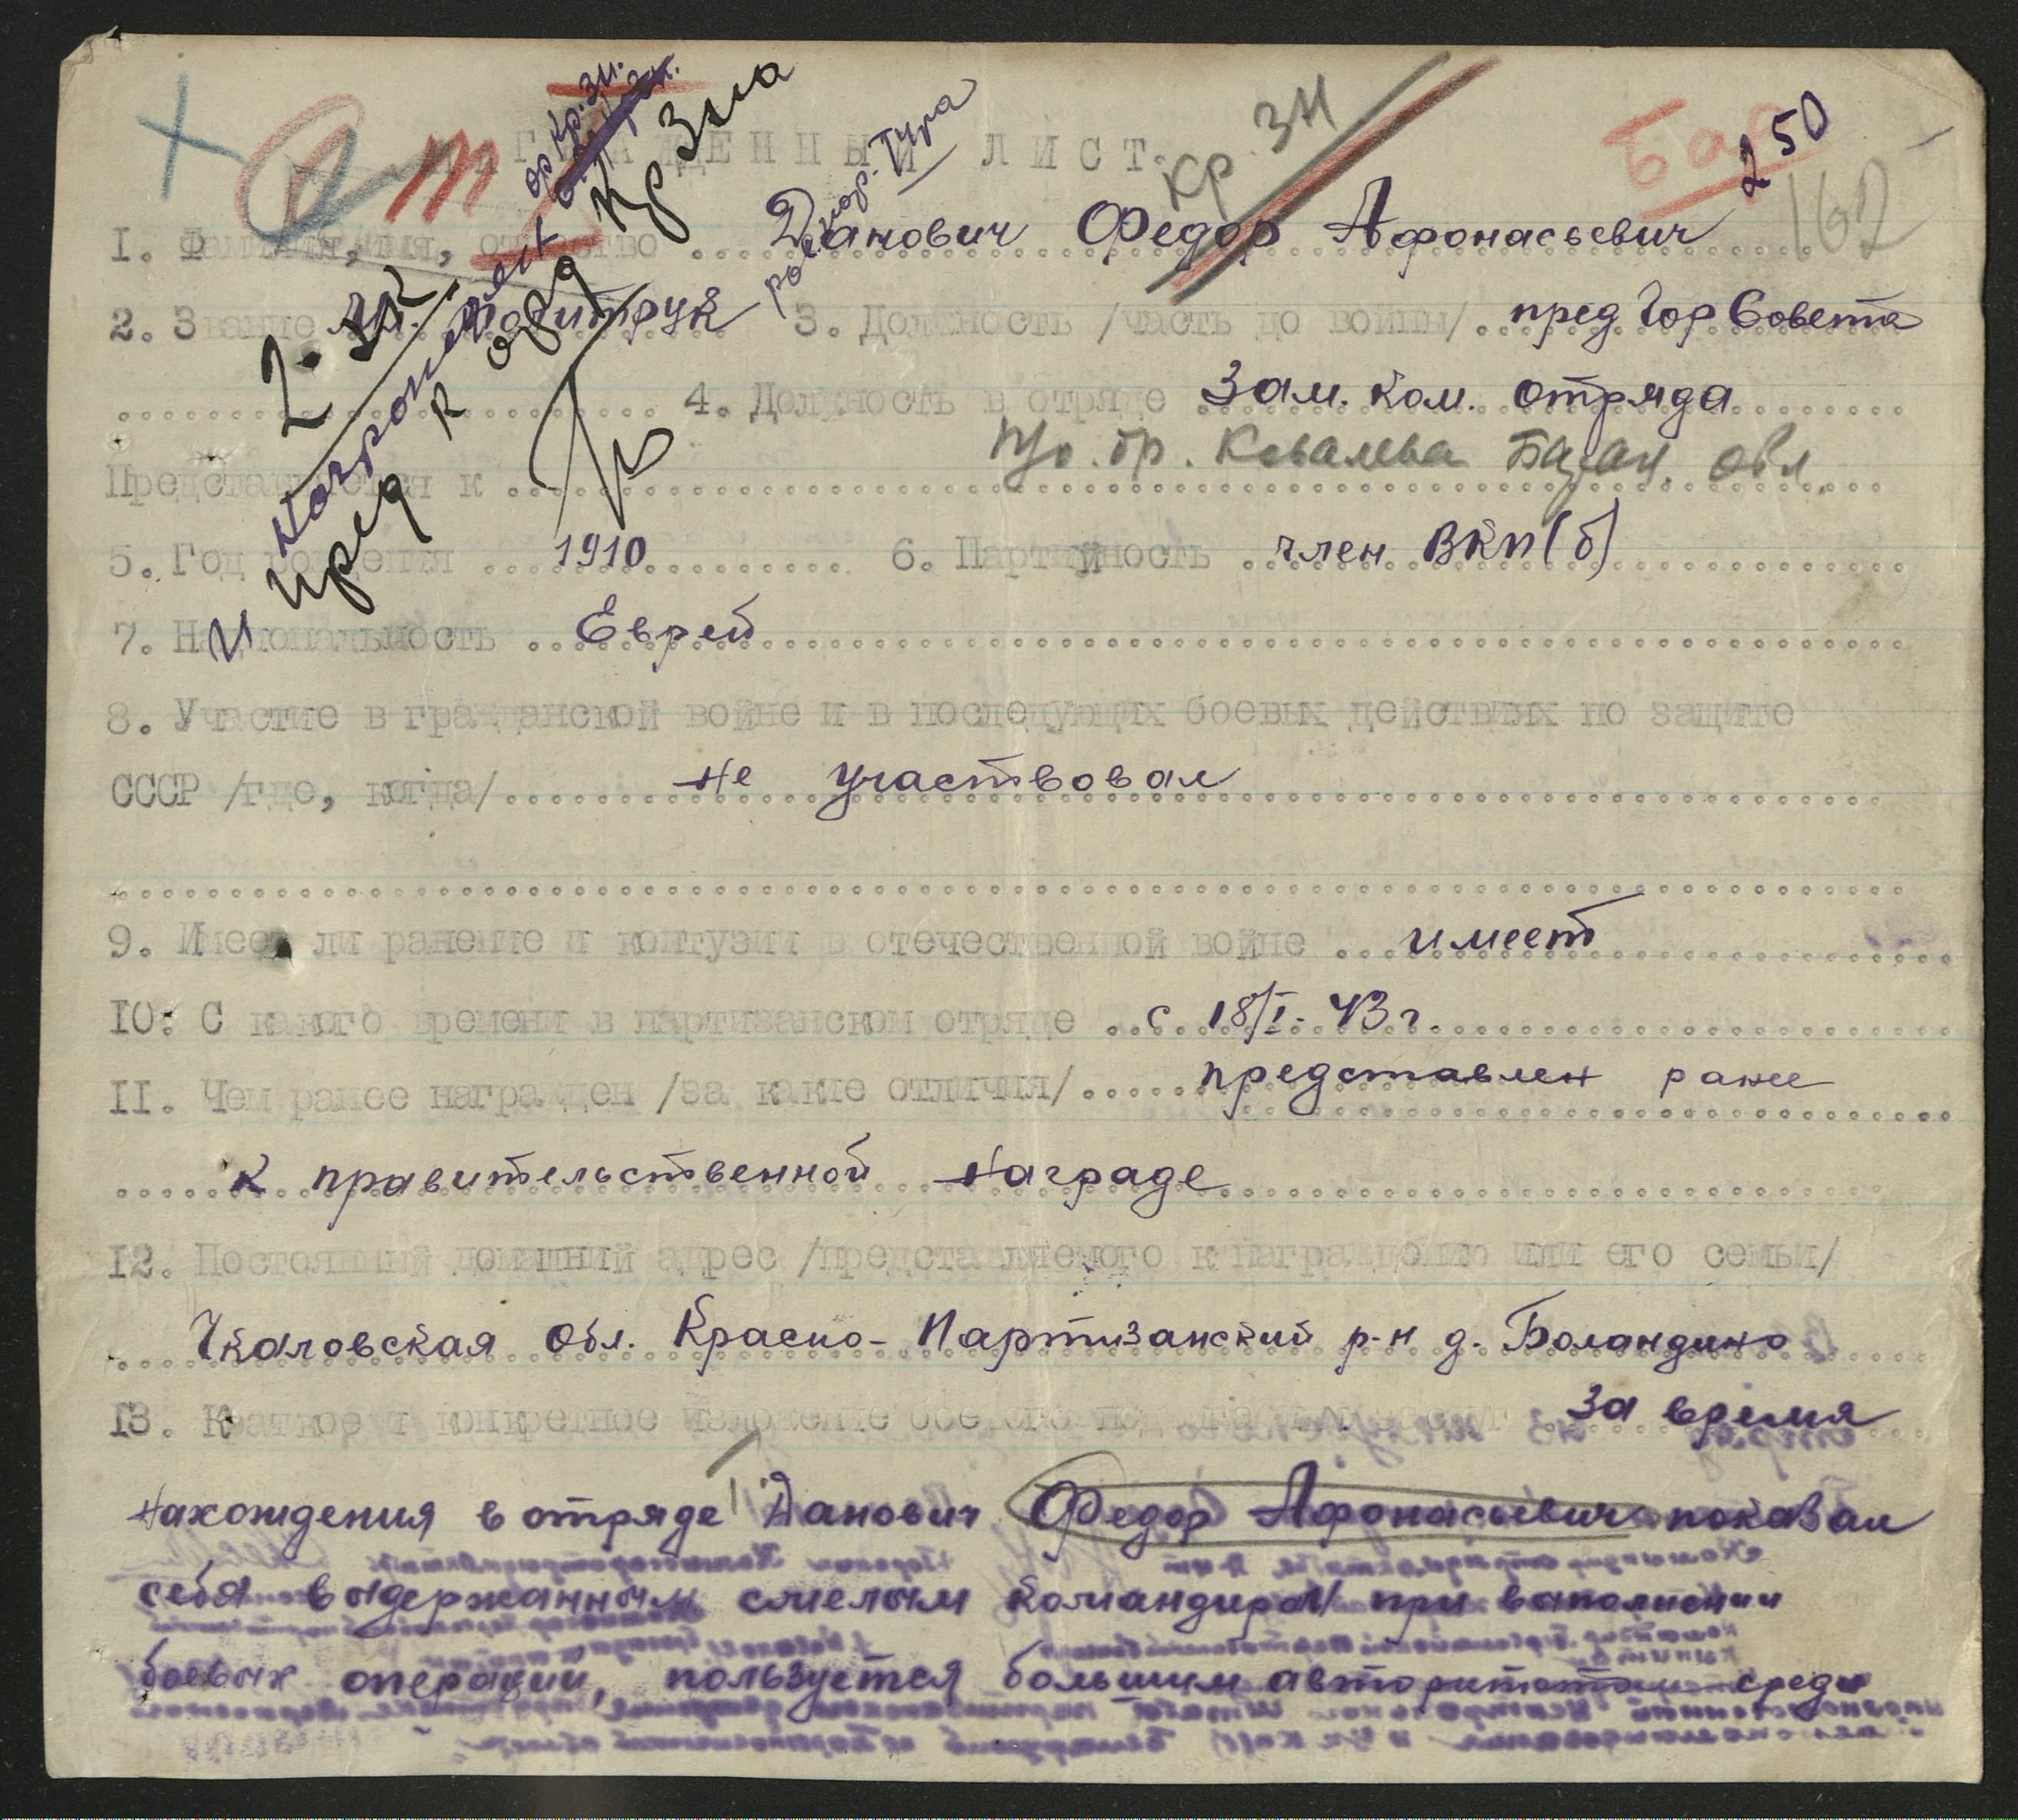 НАГРАДНЫЙ ЛИСТ.
Кр. ЗН
Бар
250
162
1. Фамилия, имя, отчество ... Данович Федор Афонасьевич
2. Звание мл. политрук 3. Должность /часть до войны/ .. пред ГорСовета
4. Должность в отряде Зам. ком. отряда
бр. Ковалева Баран. обл.
Представляется к
5. Год рождения ... 1910 6. Партийность .. член ВКП(б)
7. Национальность .. Еврей
8. Участие в гражданской войне и в последующих боевых действиях по защите
СССР /где, когда/ не участвовал
9. Имеет ли ранение и контузии в отечественной войне ... имеет
10. С какого времени в партизанском отряде .. с 18/I. 43 г.
11. Чем ранее награжден /за какие отличия/ представлен ранее
к правительственной награде
12. Постоянный домашний адрес /представляемого к награждению или его семьи/
Чкаловская Обл. Красно-Партизанский р-н д. Боландино
13. Краткое и конкретное изложение За время
нахождения в отряде Данович Федор Афонасьевич показал
себя выдержанным смелым командиром при выполнении
боевых операции, пользуется большим авторитетом среди